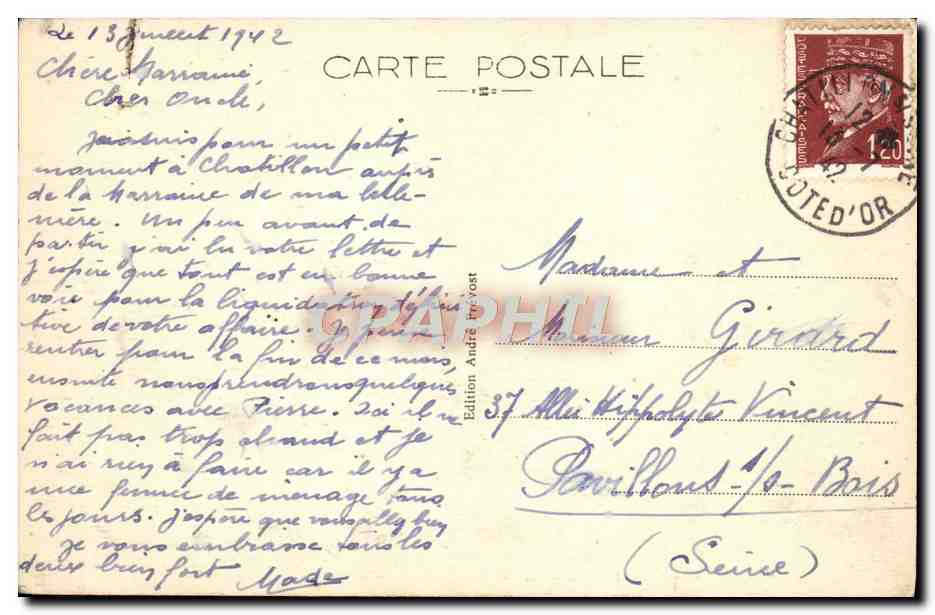 Le 13 Juillet 1942
Chère Marraine,
Cher Oncle,
Je suis pour un petit
moment à Chatillon auprès
de la Marraine de ma belle-
mère. Un peu avant de
partir j'ai lu votre lettre et
j'espère que tout est en bonne
voie pour la liquidation défini
tive de votre affaire. Je pense
rentrer pour la fin de ce mois,
ensuite nous prendrons quelques
vacances avec Pierre. Ici il ne
fait pas trop chaud et je
n'ai rien à faire car il y a
une femme de ménage tous
les jours. J'espère que vous allez bien
Je vous embrasse tous les
deux bien fort Made
CARTE POSTALE
Edition André Prévost
CRAPHIL
1F20
COTE D'OR
Madame et
Monsieur Girard
37 Allée Hippolyte Vincent
Pavillons s/s Bois
(Seine)